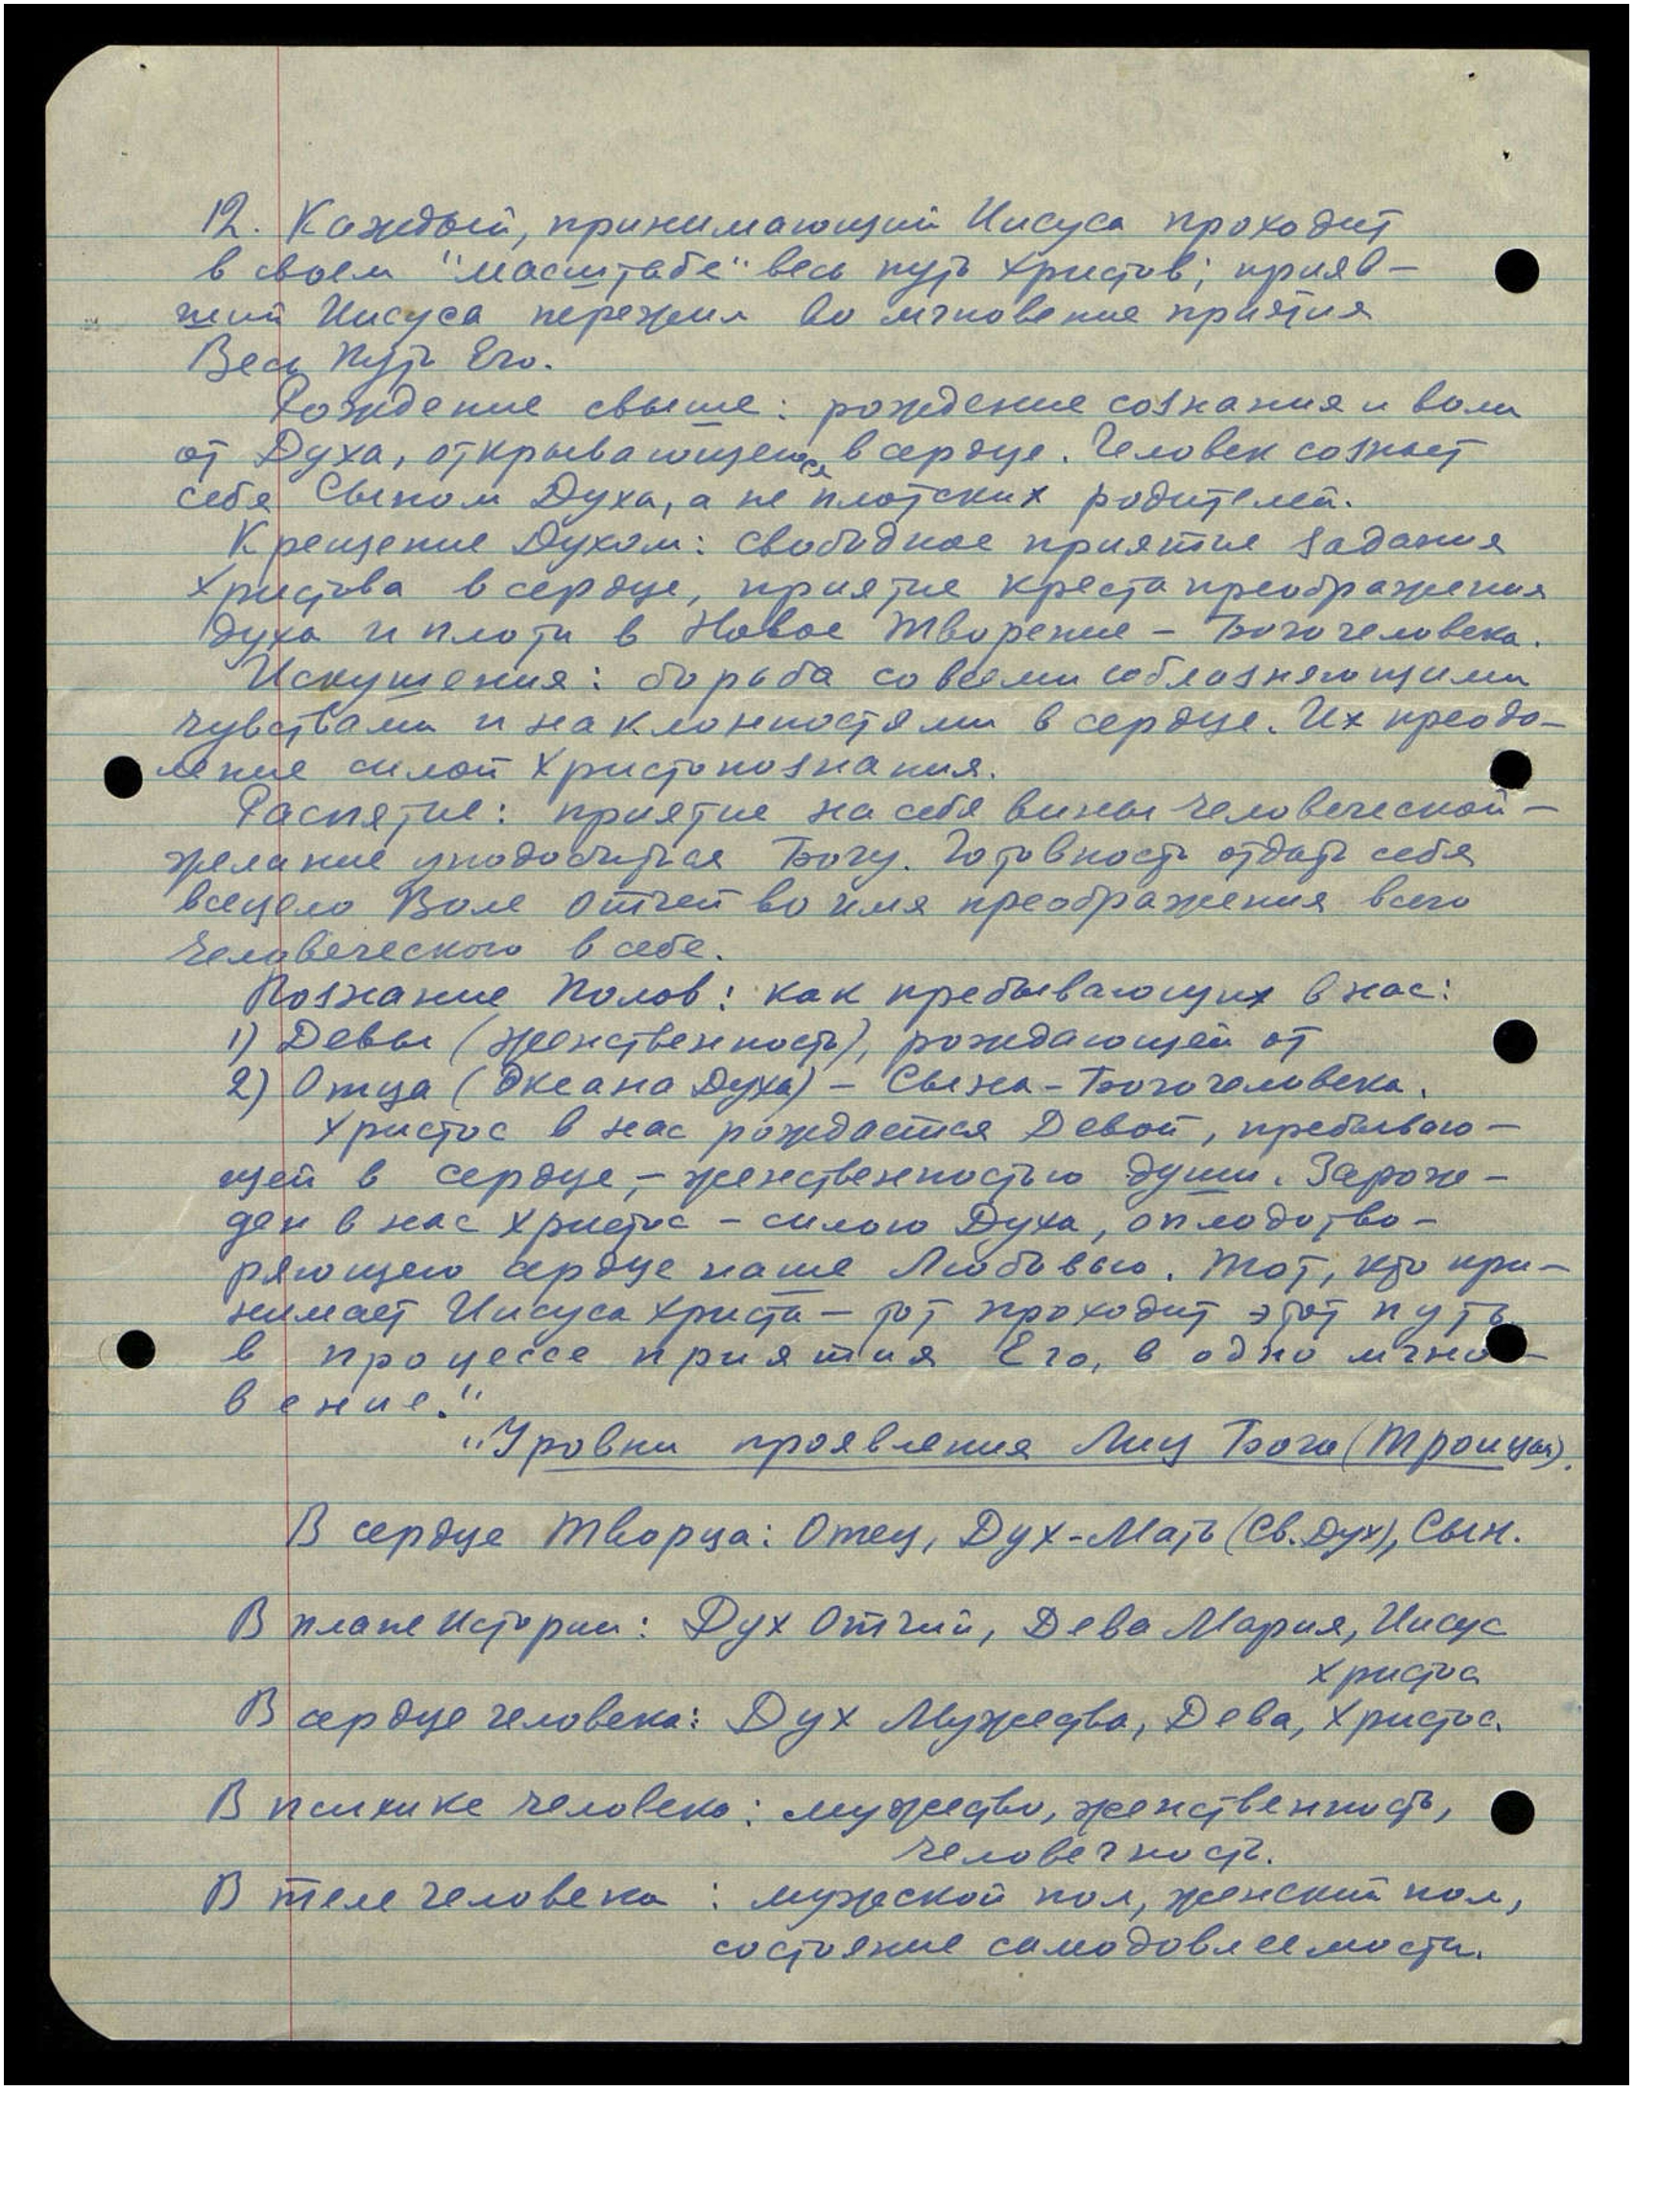 12. Каждый, принимающий Иисуса проходит
в своем "масштабе" весь путь Христов; прияв-
ший Иисуса пережил во мгновение приятия
Весь Путь Его.
Рождение свыше: рождение сознания и воли
от Духа, открывающегося в сердце. Человек сознает
себя Сыном Духа, а не плотских родителей.
Крещение Духом: свободное приятие задания
Христова в сердце, приятие креста преображения
духа и плоти в Новое Творение – Богочеловека.
Искушения: борьба со всеми соблазняющими
чувствами и наклонностями в сердце. Их преодо-
ление силой Христопознания.
Распятие: приятие на себя вины человеческой –
желание уподобиться Богу. Готовность отдать себя
всецело Воле Отчей во имя преображения всего
человеческого в себе.
Познание Полов: как пребывающих в нас:
1) Девы (женственность), рождающей от
2) Отца (Океана Духа) – Сына-Богочеловека.
Христос в нас рождается Девой, пребываю-
щей в сердце, – женственностью души. Зарож-
ден в нас Христос – силою Духа, оплодотво-
ряющего сердце наше Любовью. Тот, кто при-
нимает Иисуса Христа – тот проходит этот путь
в процессе приятия Его, в одно мгно-
вение."
"Уровни проявления Лиц Бога (Троицы).
В сердце Творца: Отец, Дух-Мать (Св. Дух), Сын.
В плане Истории: Дух Отчий, Дева Мария, Иисус
Христос
В сердце человека: Дух Мужества, Дева, Христос.
В психике человека: мужество, женственность,
человечность.
В теле человека : мужской пол, женский пол,
состояние самодовлеемости.